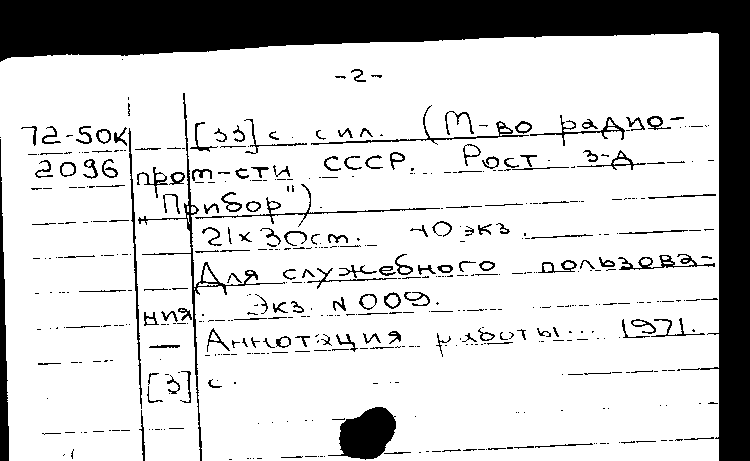 -2-
72-50к [33] с. с ил. (М-во радио-
2096 пром-сти СССР. Рост. з-д
"Прибор").
21х30cm. 40 экз.
Для служебного пользова=
ния. Экз. N 009.
— Аннотация работы... 1971.
[3] с.